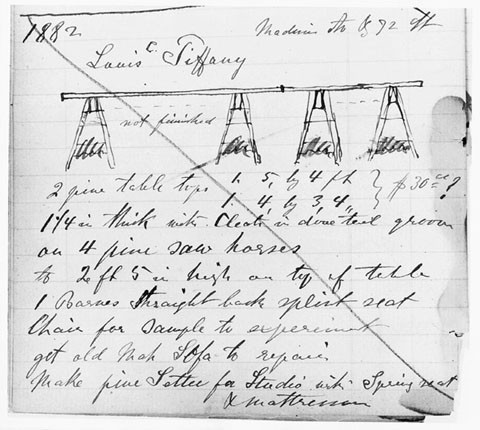 1882
Madison Av & 72 st
Louis C. Tiffany
not finished
2 pine table tops 1. 5, by 4 ft } $30 00 ?
1. 4, by 3,4,,
1 1/4 in thick with Cleats in dove tail groov
on 4 pine saw horses
to 2 ft 5 in high on top of table
1 Barnes Straight back splint seat
Chair for sample to experiment
get old Mah Sofa to repair
Make pine Settee for Studio with Spring seat
& mattress